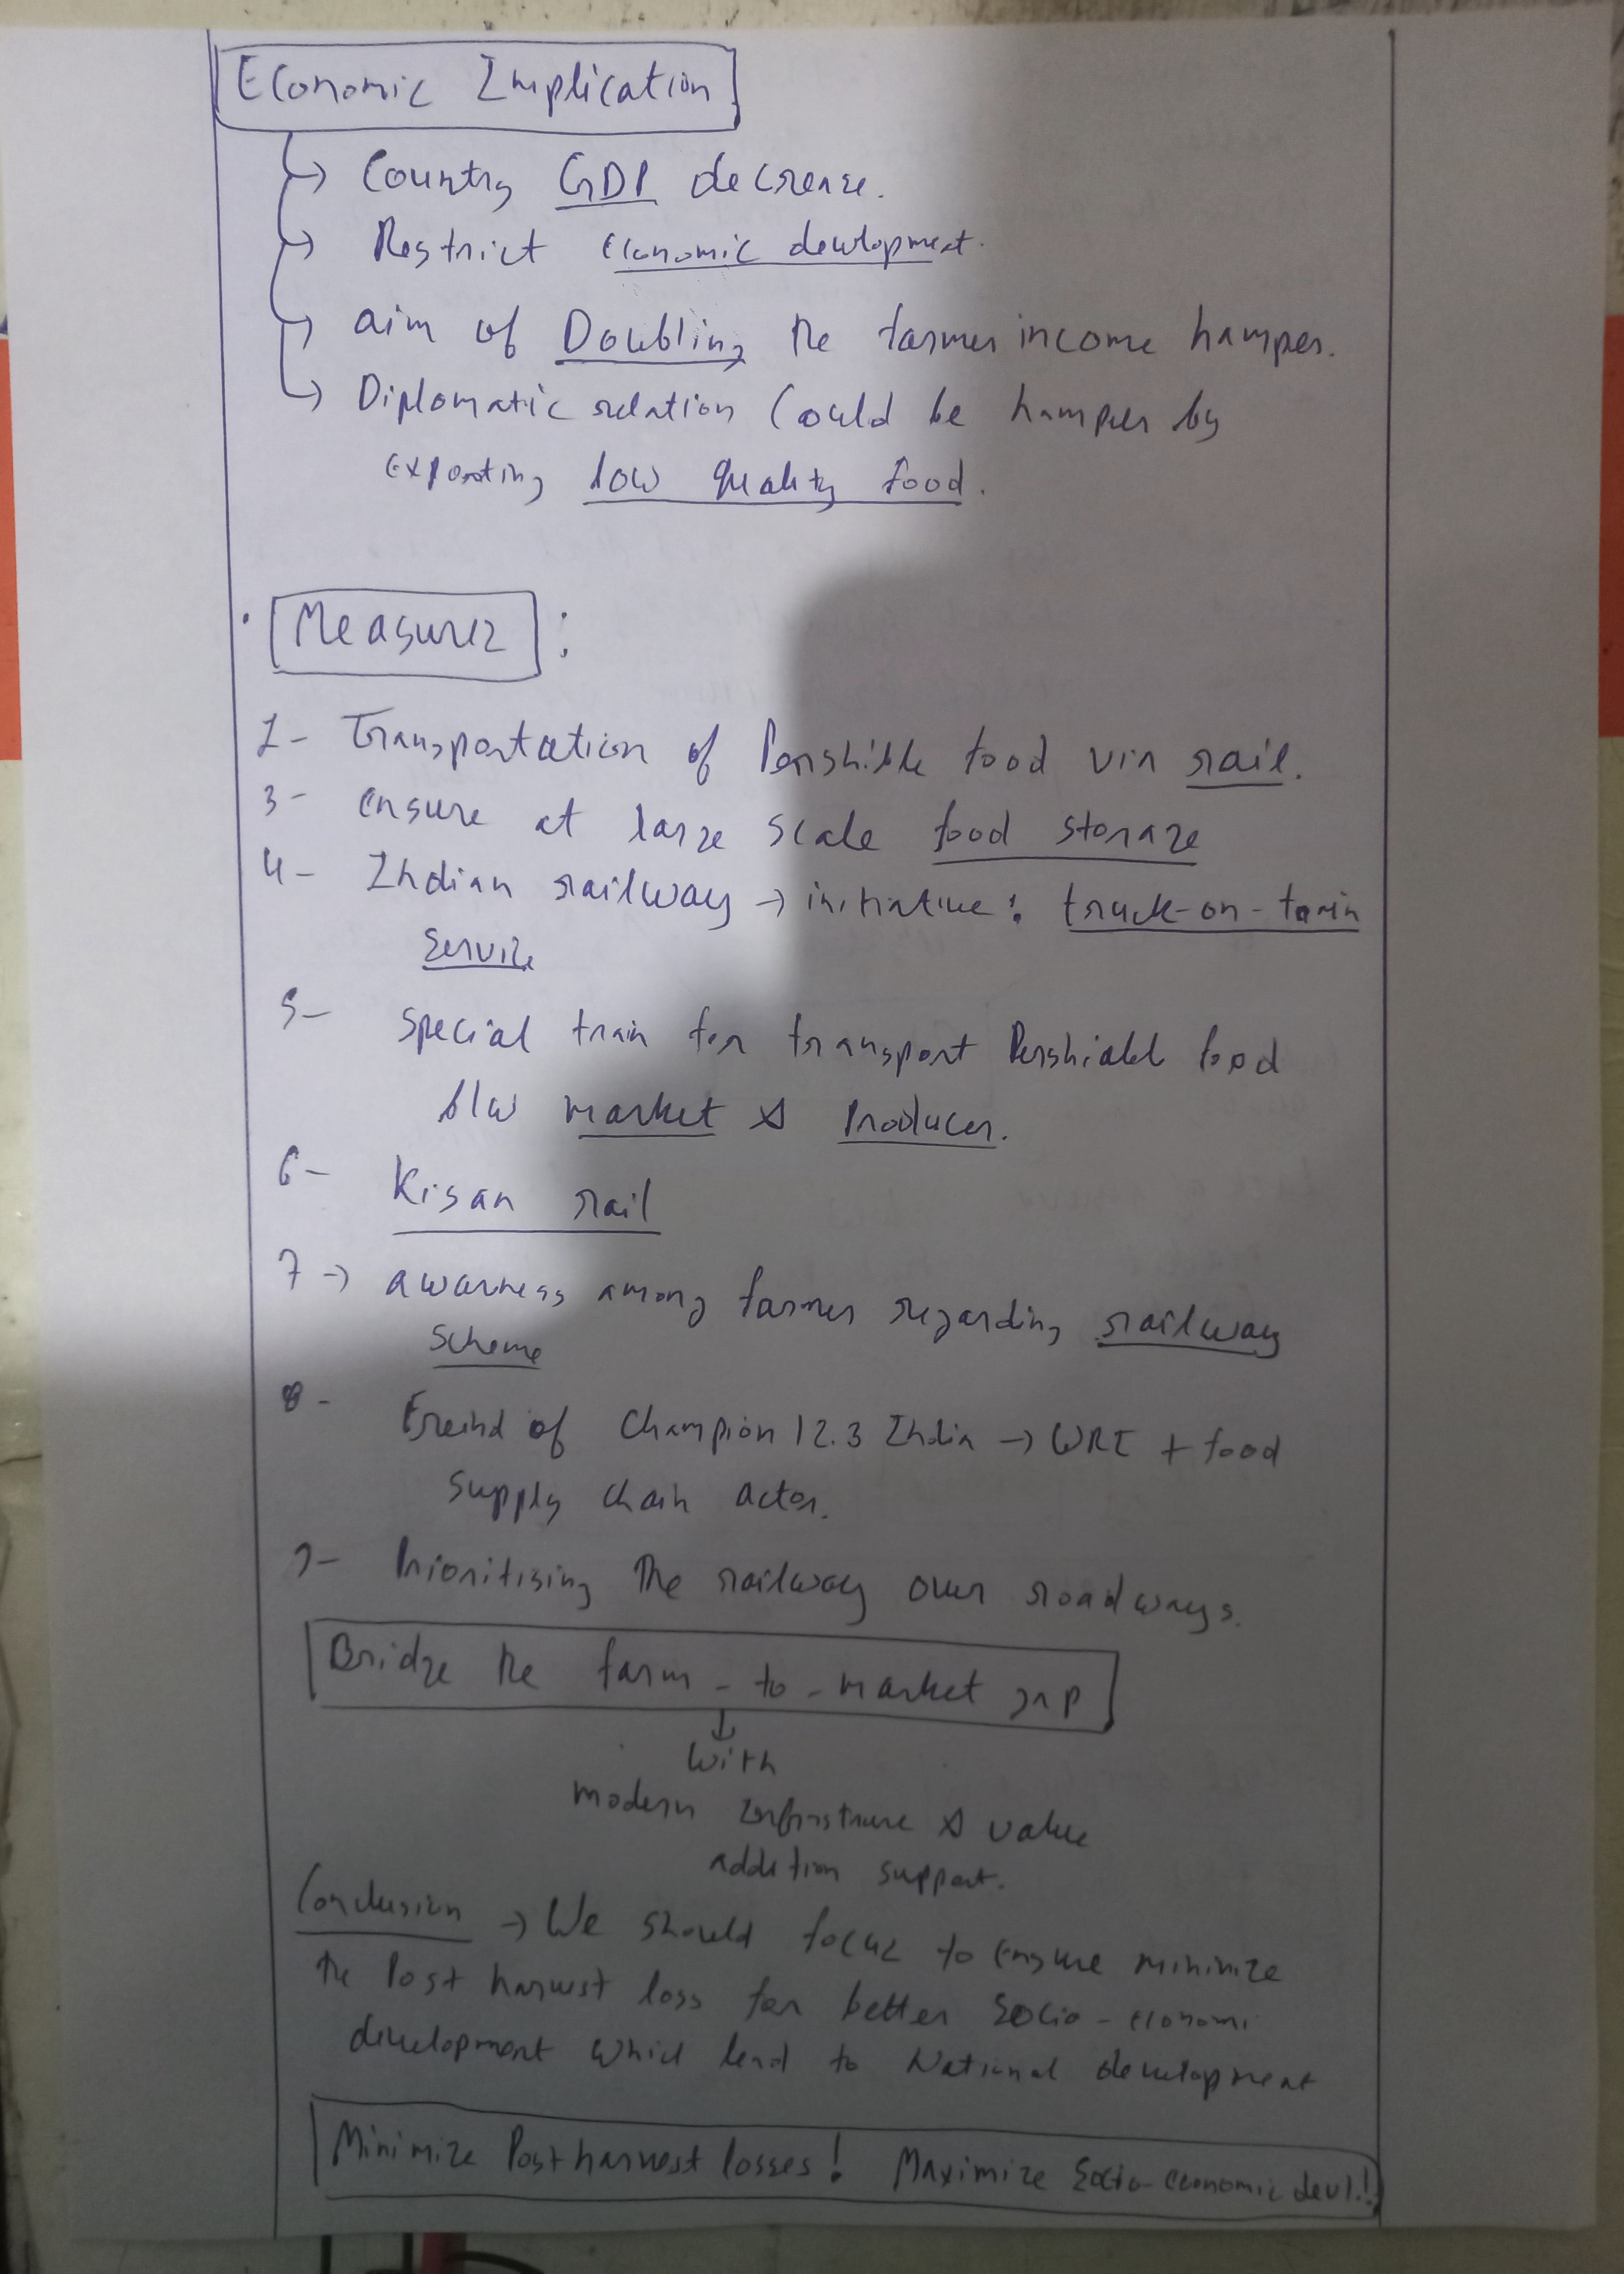 Economic Implication
Country GDP decrease.
Restrict economic development.
aim of Doubling the farmer income hamper.
Diplomatic relation could be hamper by
exporting low quality food.
Measures :
1- Transportation of Perishible food via rail.
3- ensure at large scale food storage
4- Indian railway → initiative : truck-on-train
Service
5- Special train for transport Perishiabl food
b/w market & Producer.
6- Kisan rail
7 → awarness among farmer regarding railway
scheme
8- Freind of Champion 12.3 India → WRI + food
supply chain actor.
9- Prioritising the railway over roadways.
Bridge the farm - to - market gap
↓
with
modern & value
addition support.
Conclusion → We should focus to ensure minimize
the Post harvest loss for better Socio-economi
development which lead to National development
Minimize Post harvest losses! Maximize Socio-economic devl.!